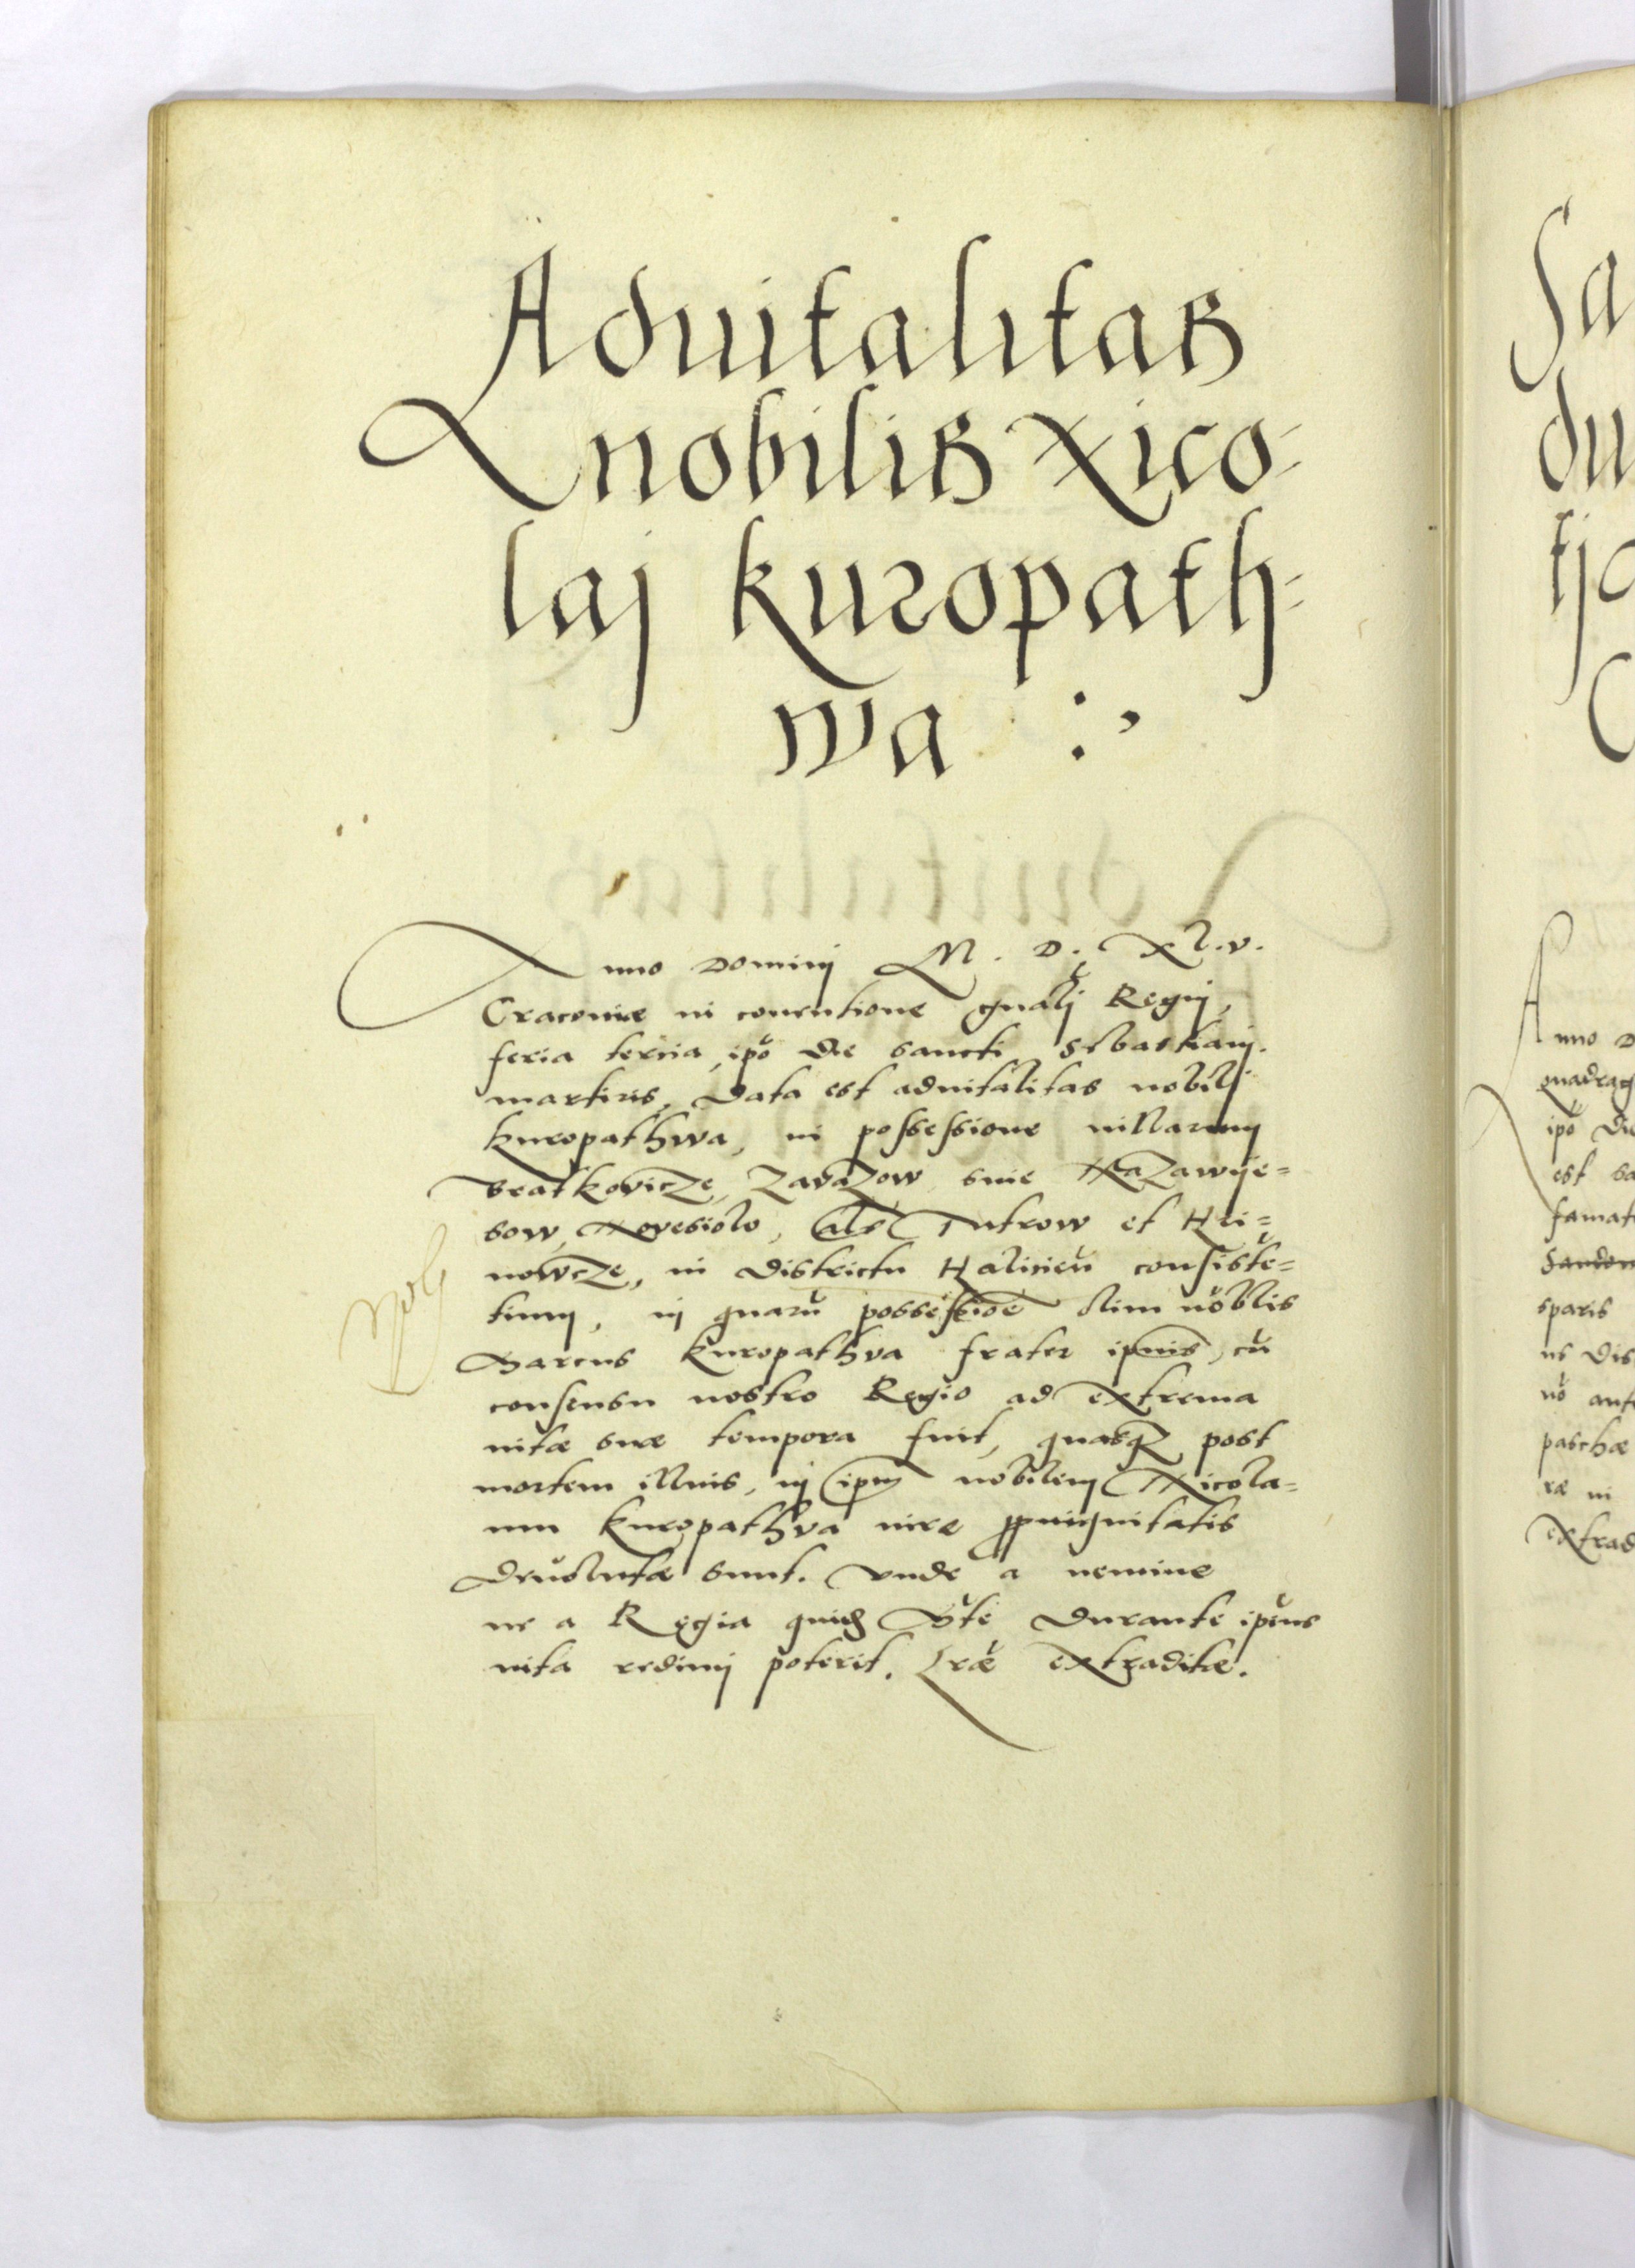 Aduitalitas
nobilis Nico-
laj Kuropath-
wa :,
Anno Dominj M. D. XL. v.
Cracouiæ in conuentione gnalj Regnj,
feria tercia, ipo die sancti Sebastianj.
martiris, Data est aduitalitas nobilj
Kuropathwa, in possessione uillarum
Bratkovicze, Zavazow siue Nazawije=
sow, Novesiolo, als Tutrow et Hri=
nowcze, in Districtu Halicien consiste=
tium, in quaru possessioe olim noblis
Marcus Kuropathva frater ipsius, cu
consensu nostro Regio ad extrema
uitæ suæ tempora fuit, quæsq post
mortem illius, in ipm nobilem Nicola=
um Kuropathva iure ppinquitatis
deuolutæ sunt. Vnde a nemine
ne a Regia quidz Mte durante ipsius
uita redimj poterit. Lræ extraditæ.
Sa
du
tj
Anno D
quadrag
ipo die
est sa
famat
Sandom
sparis
us Dis
uo ant
paschæ
ræ in
extrad